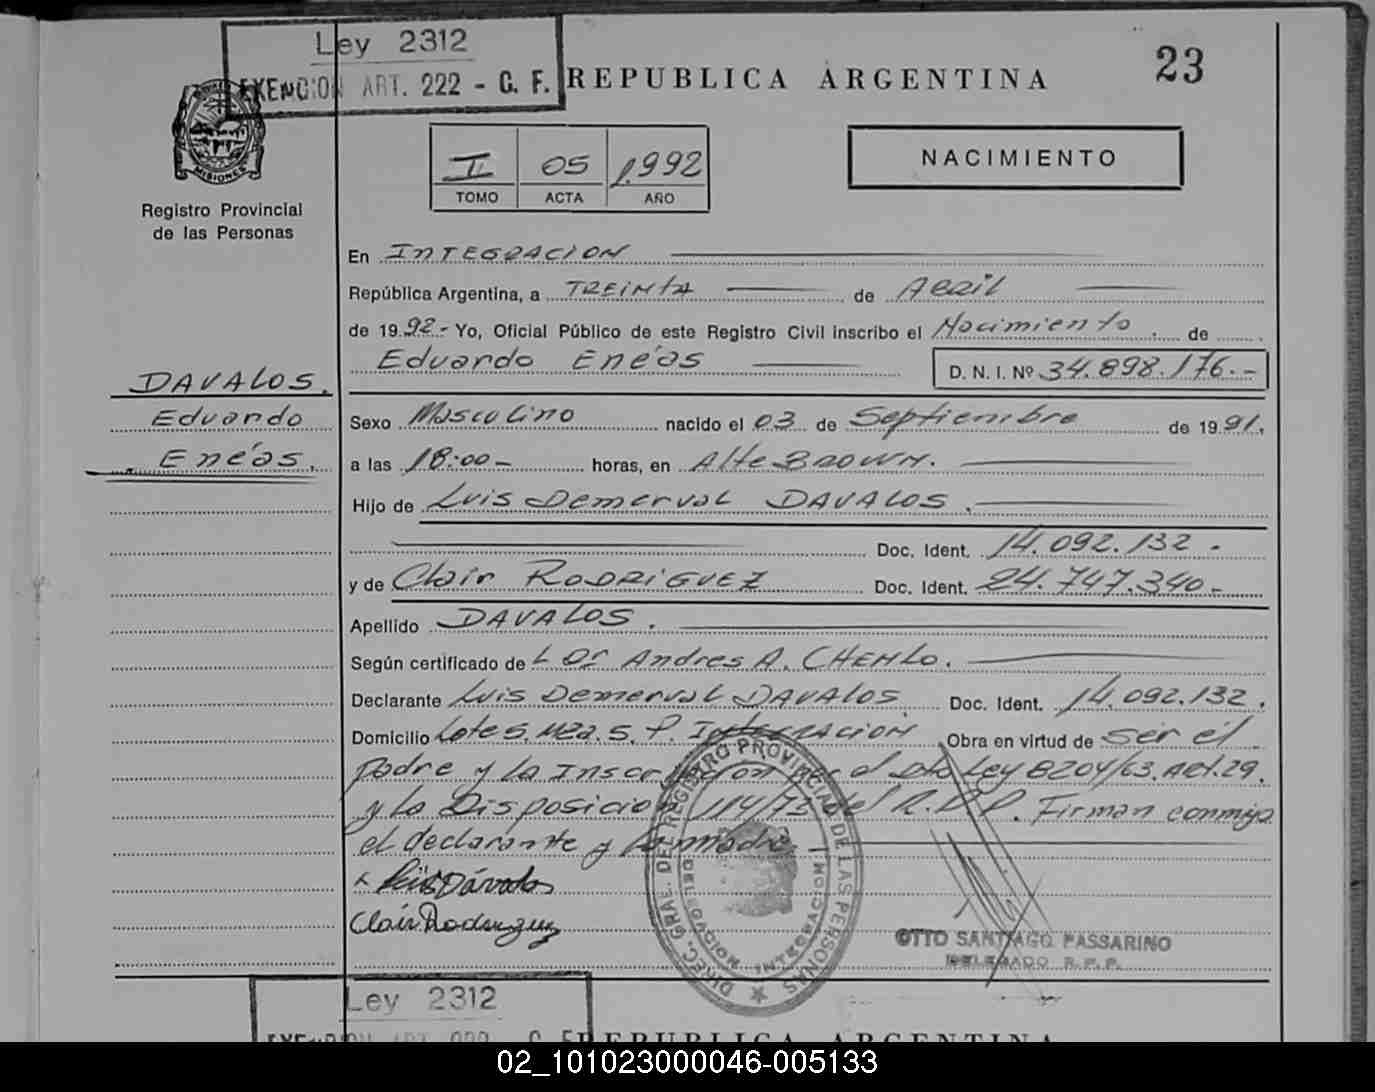 Ley 2312
EXENCION ART. 222 - C. F.
REPUBLICA ARGENTINA
23
MISIONES
Registro Provincial
de las Personas
I 05 1.992
TOMO ACTA AÑO
NACIMIENTO
En INTEGRACION
República Argentina, a TREINTA de Abril
de 1992.- Yo, Oficial Público de este Registro Civil inscribo el Nacimiento. de
Eduardo Enéas D. N. I. Nº 34.898.176.-
DAVALOS.
Eduardo
Enéas.
Sexo Masculino nacido el 03 de Septiembre de 1991.
a las 18:00- horas, en Alte BROWN.
Hijo de Luis Demerval DAVALOS.
Doc. Ident. 14.092.132.-
y de Clair RODRIGUEZ Doc. Ident. 24.747.340.-
Apellido DAVALOS.
Según certificado de L Dr Andres A. CHEMLO.
Declarante Luis Demerval DAVALOS. Doc. Ident. 14.092.132.
Domicilio Lote 5. Mza. 5. P. INTEGRACION Obra en virtud de ser el
padre y La Inscripcion por el Dto Ley 8204/63. Art. 29.
y La Disposicion 114/75 del R.P.P. Firman conmigo
el declarante y la madre
x Luis Dávalos
Clair Rodriguez
DIREC. GRAL. DEL REGISTRO PROVINCIAL DE LAS PERSONAS
DELEGACION INTEGRACION
OTTO SANTIAGO PASSARINO
DELEGADO R. P. P.
Ley 2312
EXENCION ART. 222 - C. F.
REPUBLICA ARGENTINA
02_101023000046-005133